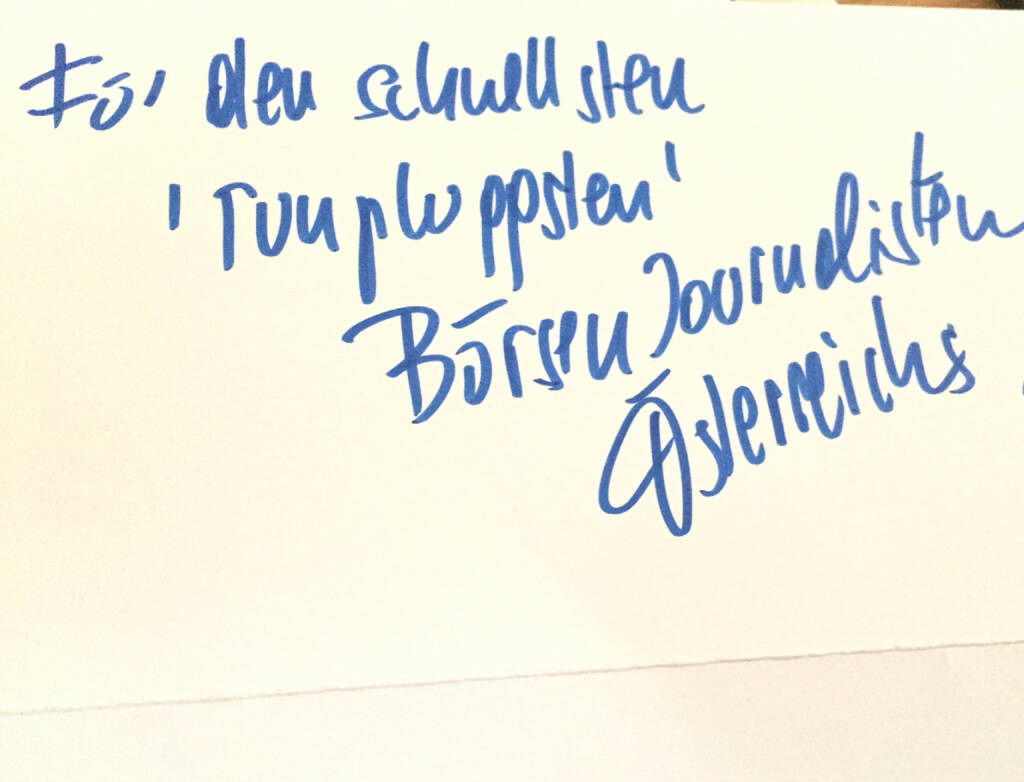 Für den schnellsten
'runpluppsten'
Börsen Journalisten
Österreichs